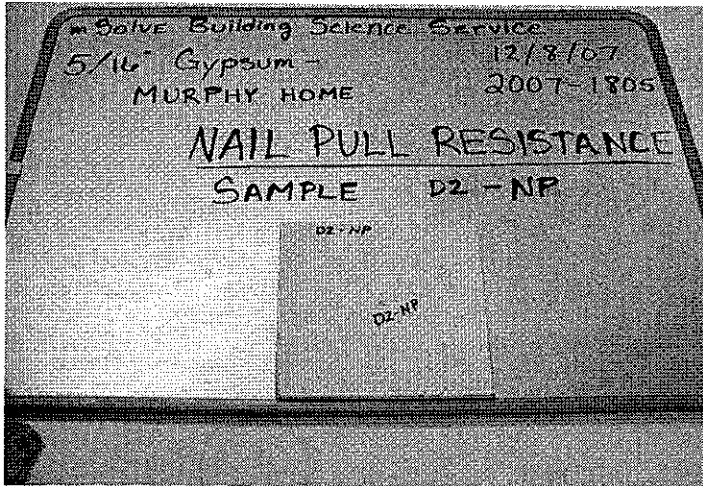 m-Solve Building Science Service
5/16" Gypsum - 12/8/07
MURPHY HOME 2007-1805
NAIL PULL RESISTANCE
SAMPLE D2-NP
D2-NP
D2-NP